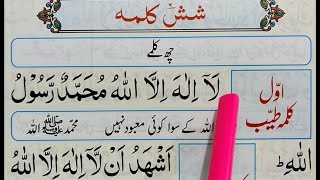 شش کلمہ
چھ کلمے
اوّل کلمہ طیّب
لَآ اِلٰهَ اِلَّا اللّٰهُ مُحَمَّدٌ رَّسُوْلُ
اللّٰهِ ؕ
اللہ کے سوا کوئی معبود نہیں محمد ﷺ اللہ
اَشْهَدُ اَنْ لَّآ اِلٰهَ اِلَّا اللّٰهُ